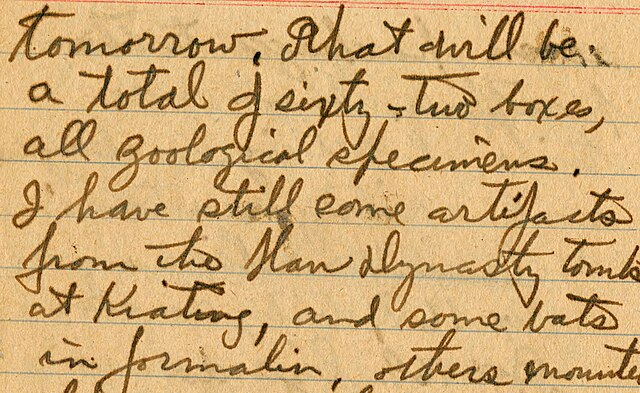 tomorrow. That will be
a total of sixty-two boxes,
all zoological specimens.
I have still some artifacts
from the Han Dynasty tombs
at Kiating, and some bats
in formalin, others mounte